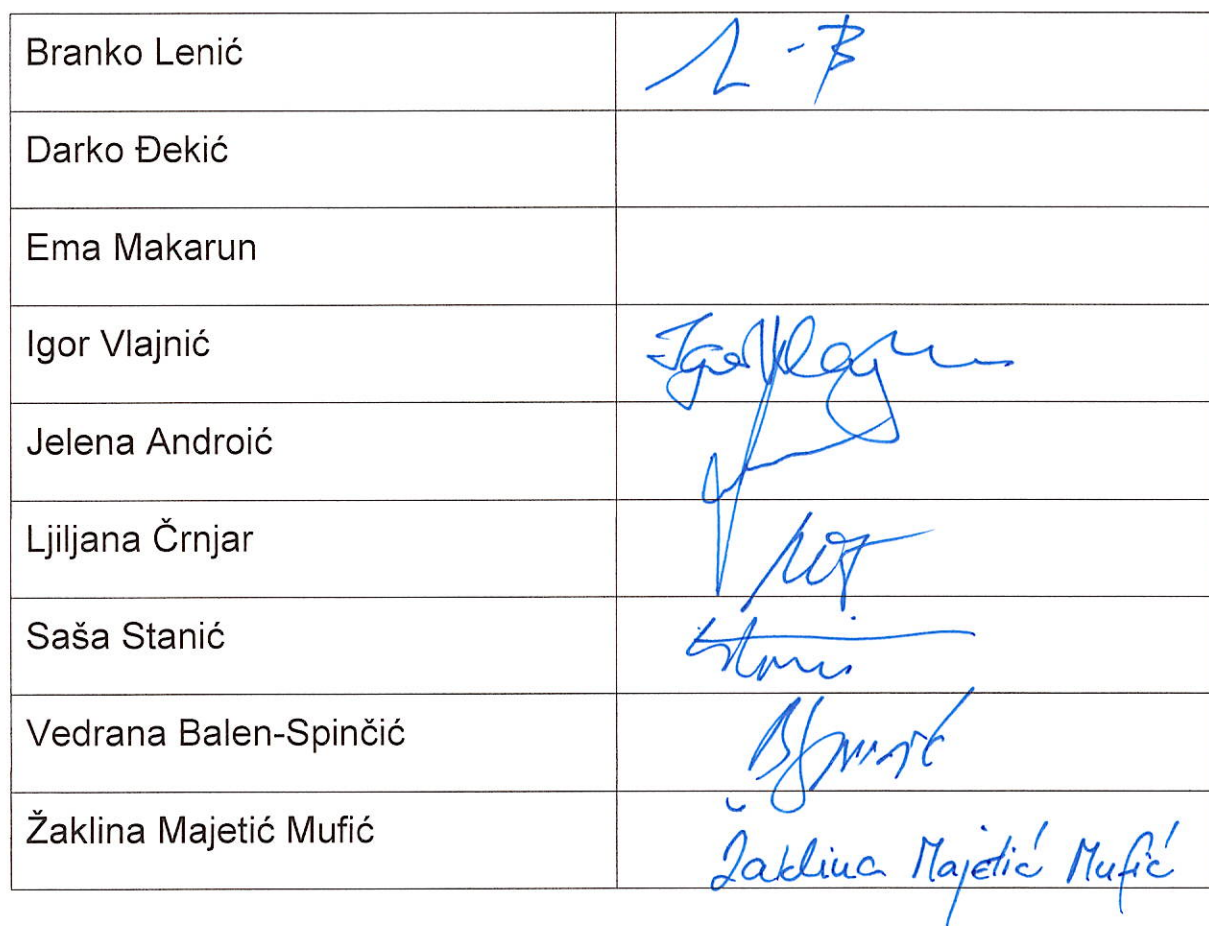 Branko Lenić
Darko Đekić
Ema Makarun
Igor Vlajnić
Igor
Jelena Androić
Ljiljana Črnjar
Saša Stanić
Vedrana Balen-Spinčić
Žaklina Majetić Mufić
Žaklina Majetić Mufić